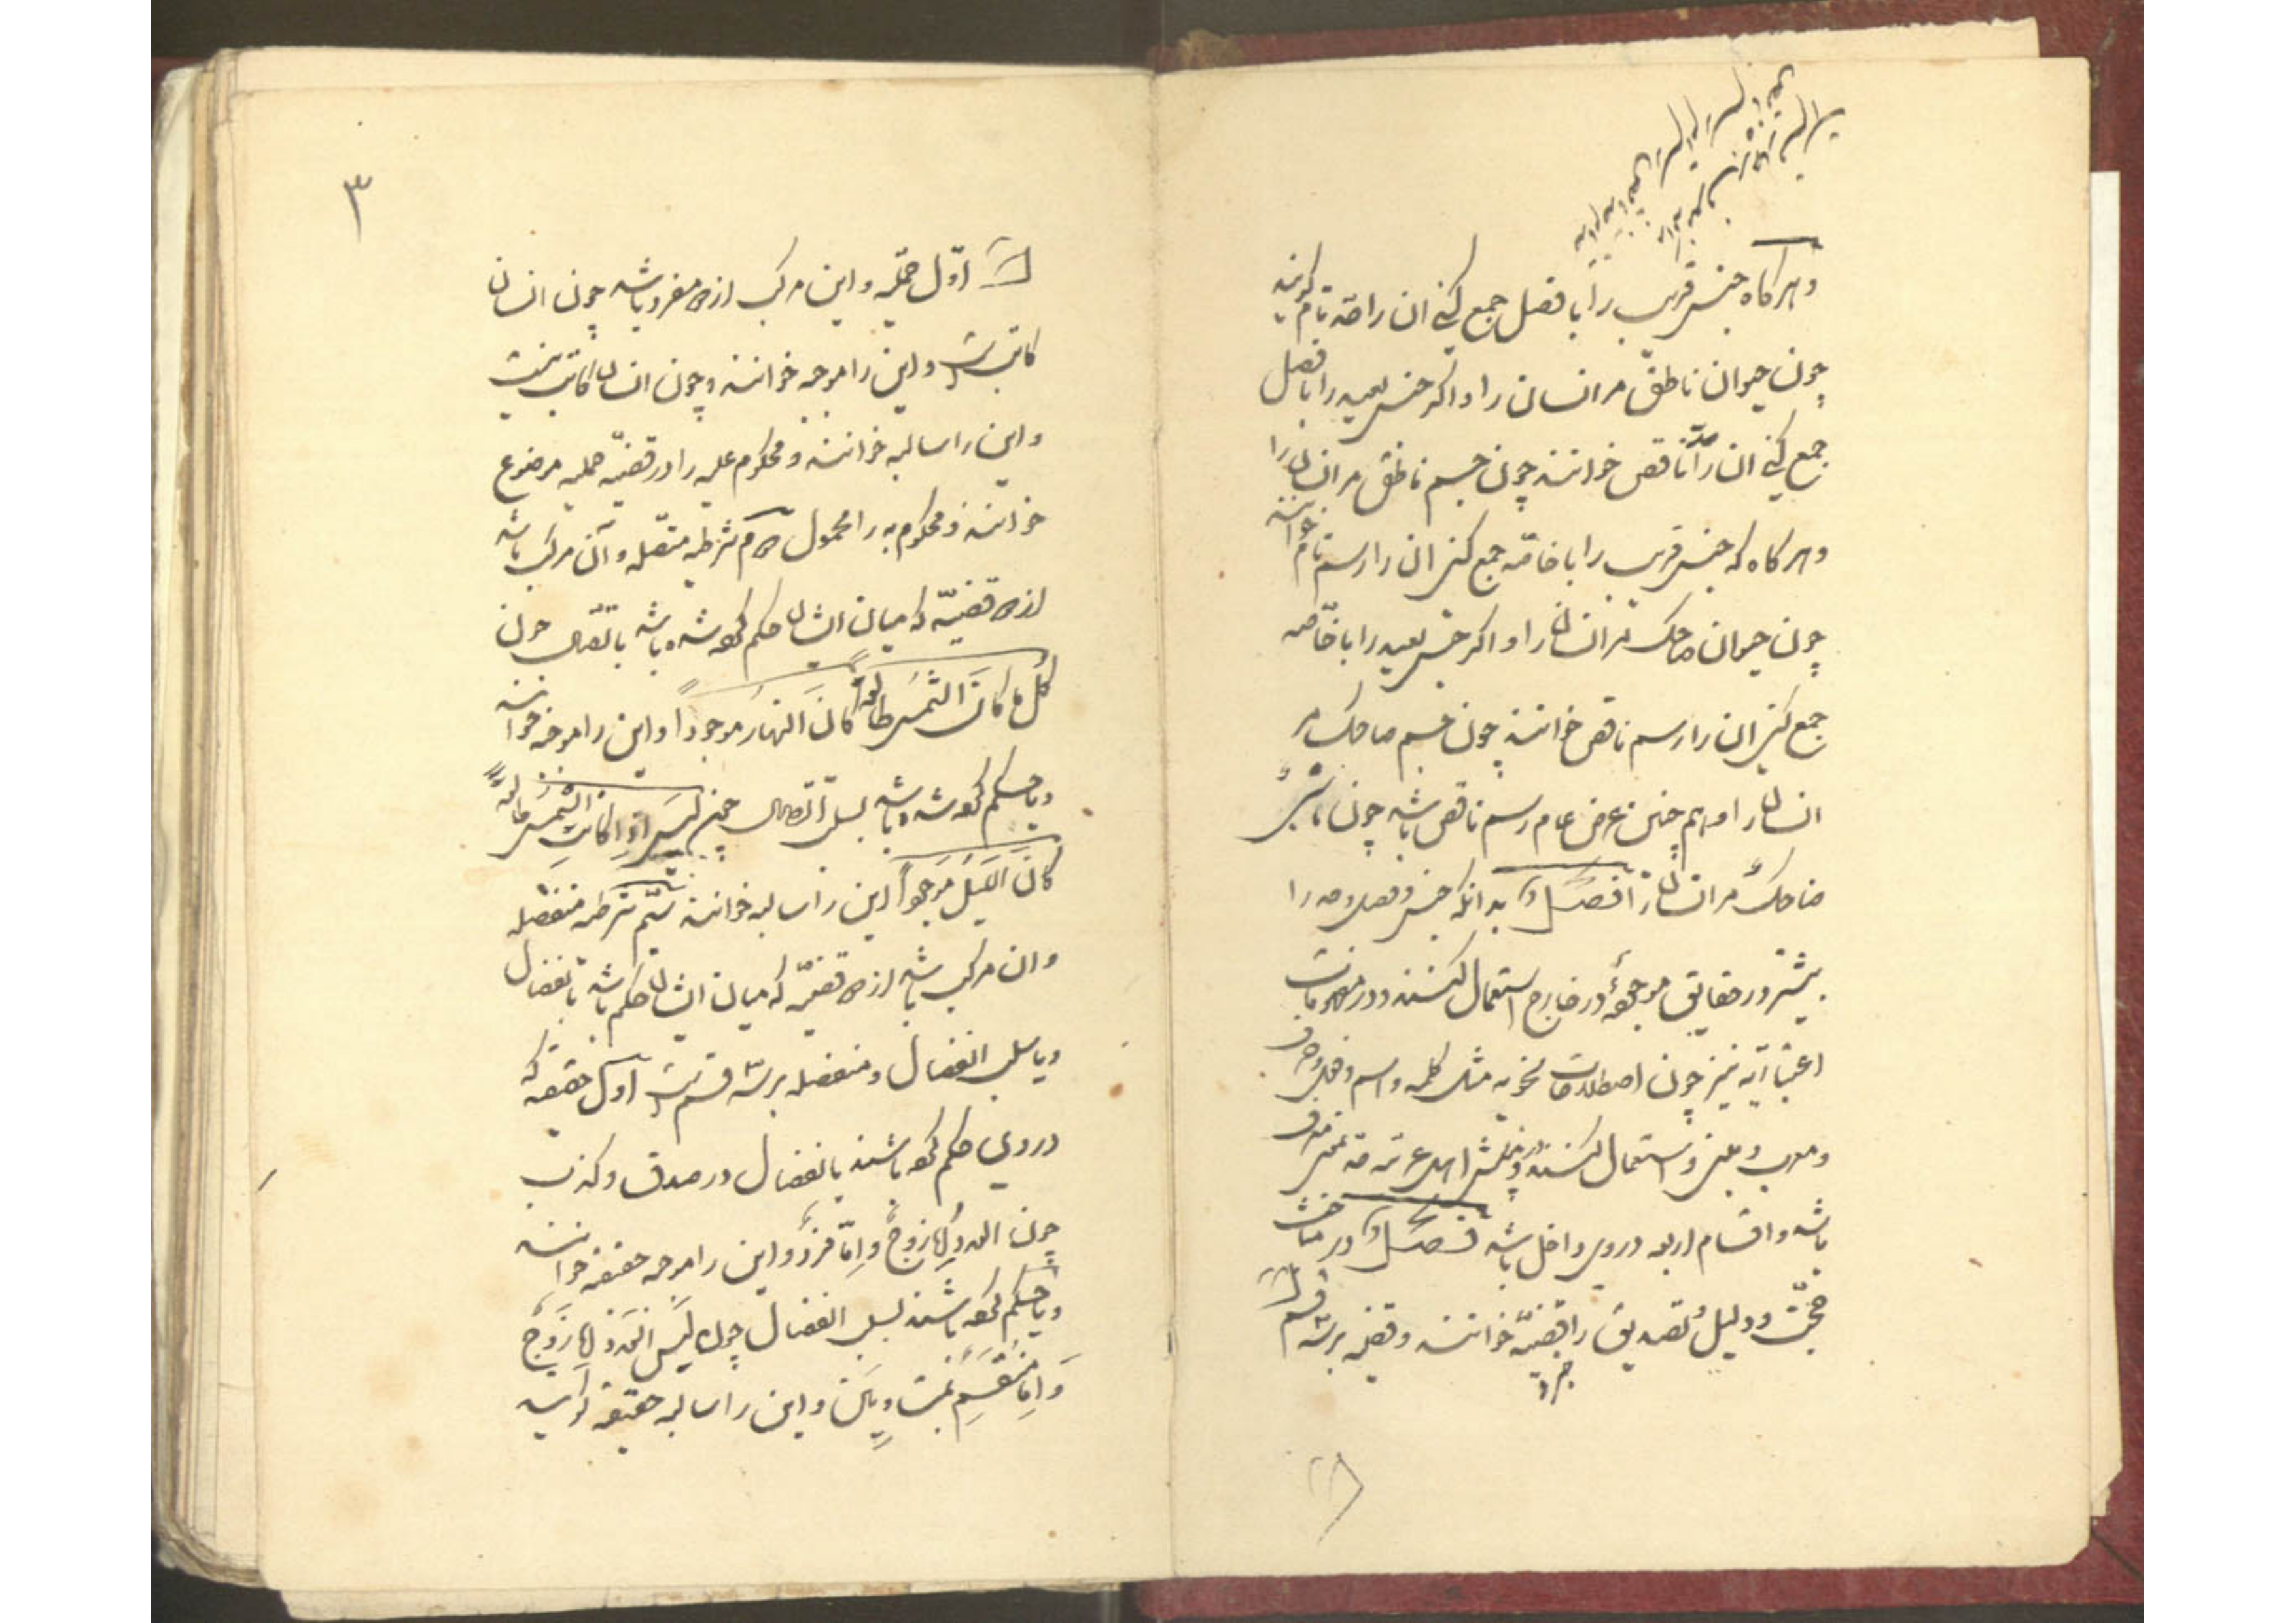 وهرکاه جنس قریب را با فصل جمع کنی ان را حد تام کویند
چون حیوان ناطق مر انسان را و اکر جنس بعید را با فصل
جمع کنی ان را حد ناقص خوانند چون جسم ناطق مر انسان را
وهرکاه که جنس قریب را با خاصه جمع کنی ان را رسم تام خوانند
چون حیوان ضاحک مر انسان را و اکر جنس بعید را با خاصه
جمع کنی ان را رسم ناقص خوانند چون جسم ضاحک مر
انسان را و هم چنین عرض عام رسم ناقص باشد چون ماشی
ضاحک مر انسان را فصل بدانکه جنس و فصل و حد را
بیشتر در حقایق موجوده در خارج استعمال کنند و در مفهومات
اعتباریه نیز چون اصطلاحات نحویه مثل کلمه و اسم و فعل و حرف
و معرب و مبنی استعمال کنند
باشد و اقسام اربعه در وی داخل باشد فصل در مباحث
حجت و دلیل و تصدیق را قضیه خوانند و قضیه بر سه قسم است
جزو
۳
اول حملیه و این مرکب از دو مفرد باشد چون انسان
کاتب است و این را موجبه خوانند و چون انسان کاتب نیست
و این را سالبه خوانند و محکوم علیه را در قضیه حملیه موضوع
خوانند و محکوم به را محمول دوم شرطیه متصله و آن مرکب باشد
از دو قضیه که میان ایشان حکم کرده شده باشد باتصال چون
کل ما کانت الشمس طالعة کان النهار موجودا و این را موجبه خوانند
و یا حکم کرده شده باشد بسلب اتصال چون لیس اذا کانت الشمس طالعة
کان اللیل موجودا این را سالبه خوانند سیم شرطیه منفصله
وان مرکب باشد از دو قضیه که میان ایشان حکم باشد بانفصال
و یا سلب انفصال و منفصله بر سه قسم است اول حقیقیه که
در وی حکم کرده باشند بانفصال در صدق و کذب
چون العدد اما زوج و اما فرد و این را موجبه حقیقیه خوانند
و یا حکم کرده باشند بسلب انفصال چون لیس العدد اما زوج
و اما منقسم بمتساویین و این را سالبه حقیقیه خوانند